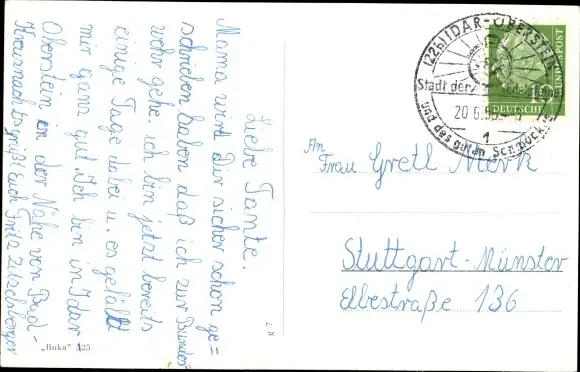 Liebe Tante.
Mama wird Dir sicher schon ge=
schrieben haben daß ich zur Bundes
wehr gehe, ich bin jetzt bereits
einige Tage dabei u. es gefällt
mir ganz gut. Ich bin in Idar
Oberstein in der Nähe von Bad-
Kreuznach. Es grüßt Euch Fritz
"Buka" 325
(22b) IDAR-OBERSTEIN
Stadt der Edelsteine
20.6.
und des guten Schmuckes
1
BUNDESPOST
DEUTSCHE
An
Frau Gretl Merk
Stuttgart-Münster
Elbestraße 136